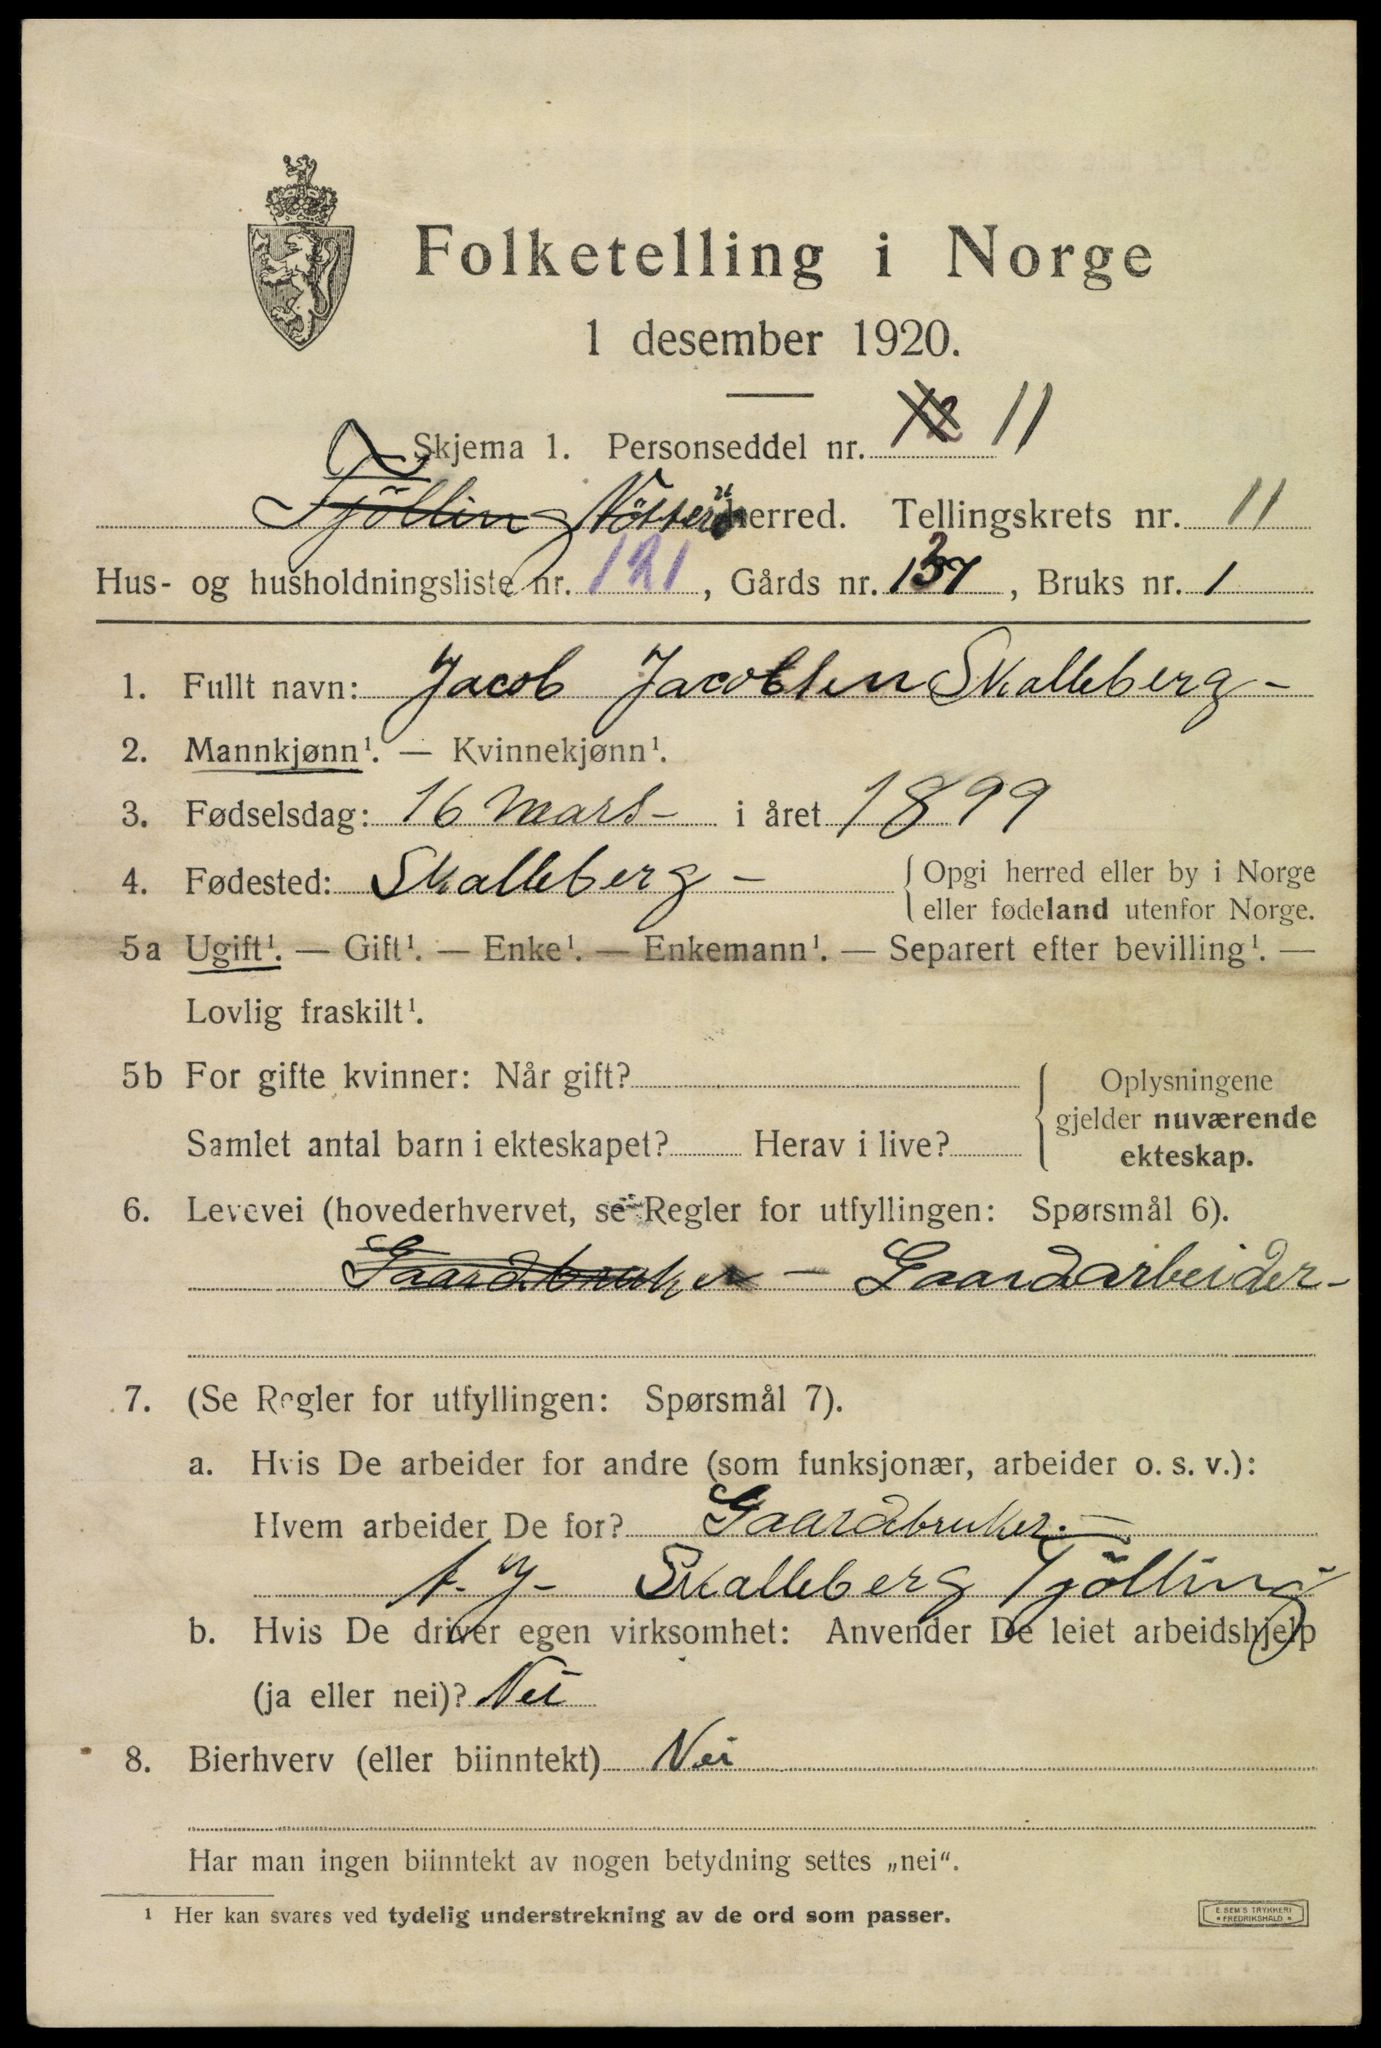 Folketelling i Norge
1 desember 1920.
Skjema 1. Personseddel nr. 12 11
Tjölling Nötterö herred. Tellingskrets nr. 11
Hus- og husholdningsliste nr. 121, Gårds nr. 137, Bruks nr. 1
1. Fullt navn: Jacob Jacobsen Skalleberg -
2. Mannkjønn¹. — Kvinnekjønn¹.
3. Fødselsdag: 16 Mars - i året 1899
4. Fødested: Skalleberg - { Opgi herred eller by i Norge
eller fødeland utenfor Norge.
5a Ugift¹. — Gift¹. — Enke¹. — Enkemann¹. — Separert efter bevilling¹. —
Lovlig fraskilt¹.
5b For gifte kvinner: Når gift? { Oplysningene
gjelder nuværende
Samlet antal barn i ekteskapet? Herav i live?
ekteskap.
6. Levevei (hovederhvervet, se Regler for utfyllingen: Spørsmål 6).
Gaardbruker - Gaardarbeider -
7. (Se Regler for utfyllingen: Spørsmål 7).
a. Hvis De arbeider for andre (som funksjonær, arbeider o. s. v.):
Hvem arbeider De for? Gaardbruker. -
Skalleberg Tjölling
b. Hvis De driver egen virksomhet: Anvender De leiet arbeidshjelp
(ja eller nei)? Nei
8. Bierhverv (eller biinntekt) Nei
Har man ingen biinntekt av nogen betydning settes „nei“.
¹ Her kan svares ved tydelig understrekning av de ord som passer.
E. SEM'S TRYKKERI
* FREDRIKSHALD *